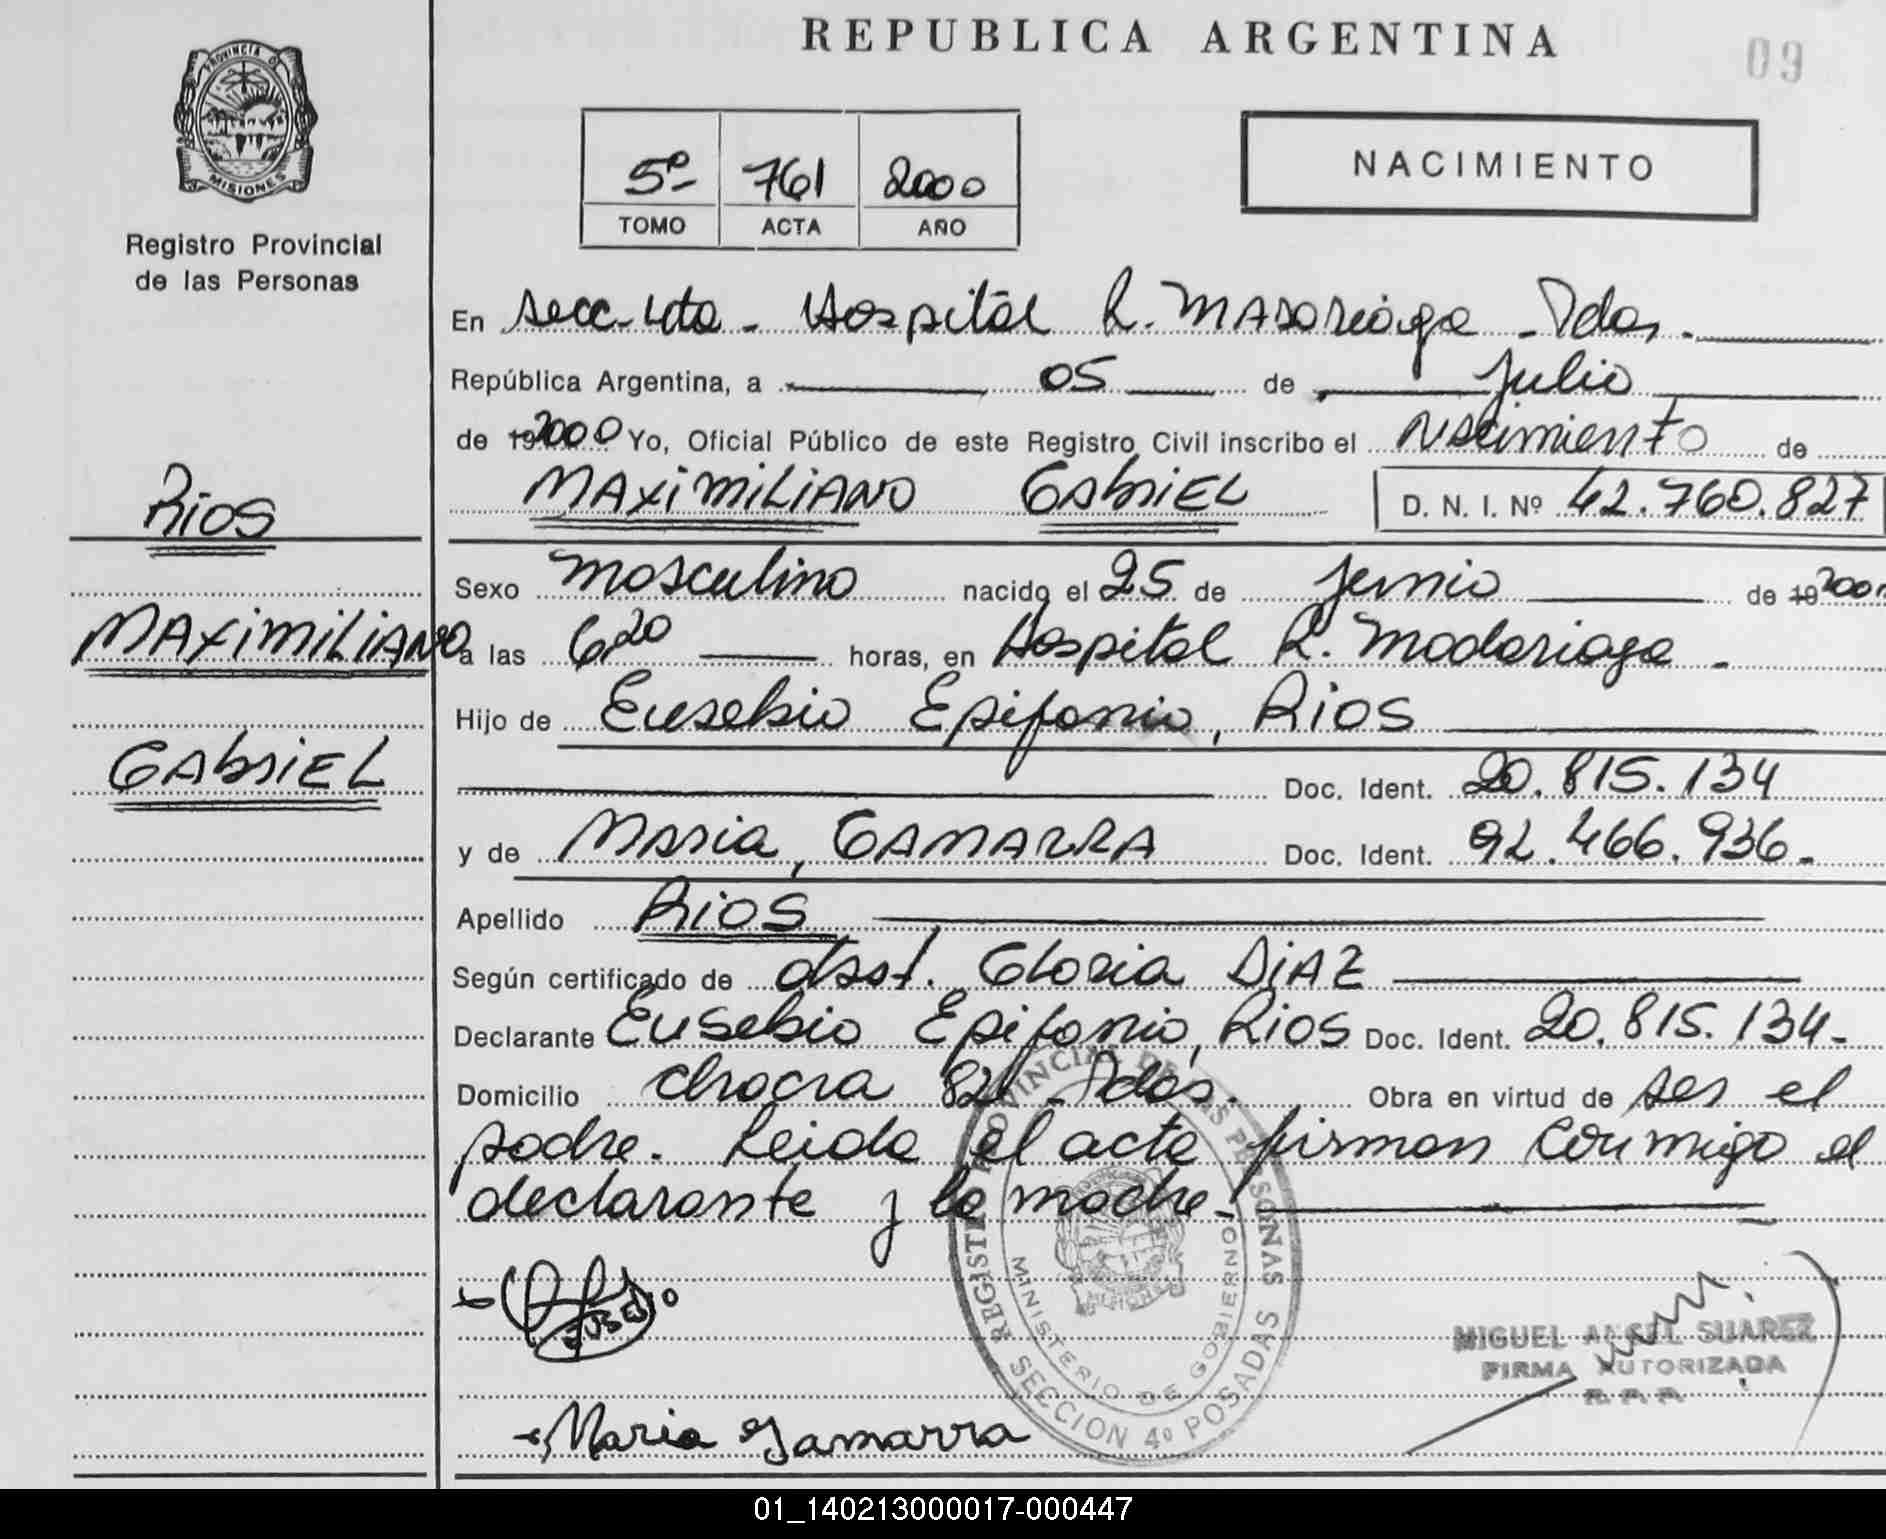 REPUBLICA ARGENTINA
09
PROVINCIA DE
MISIONES
Registro Provincial
de las Personas
5º 761 2000
TOMO ACTA AÑO
NACIMIENTO
En secc. 4ta - Hospital R. Madariaga - Pdas.
República Argentina, a 05 de Julio
de 19 2000 Yo, Oficial Público de este Registro Civil inscribo el Nacimiento de
MAXIMILIANO GABRIEL D. N. I. Nº 42.760.827
Rios
MAXIMILIANO
GABRIEL
Sexo masculino nacido el 25 de Junio de 19 2000
a las 6,20 horas, en Hospital R. Madariaga -
Hijo de Eusebio Epifanio, Rios
Doc. Ident. 20.815.134
y de Maria, GAMARRA Doc. Ident. 92.466.936.-
Apellido Rios
Según certificado de obst. Gloria DIAZ
Declarante Eusebio Epifanio, Rios Doc. Ident. 20.815.134.-
Domicilio chacra 82 - Pdas. Obra en virtud de ser el
padre. Leida el acta firman conmigo el
declarante y la madre.-
EUSEBIO
Maria Gamarra
REGISTRO PROVINCIAL DE LAS PERSONAS
MINISTERIO DE GOBIERNO
SECCION 4º POSADAS
MIGUEL ANGEL SUAREZ
FIRMA AUTORIZADA
R. P. P.
01_140213000017-000447